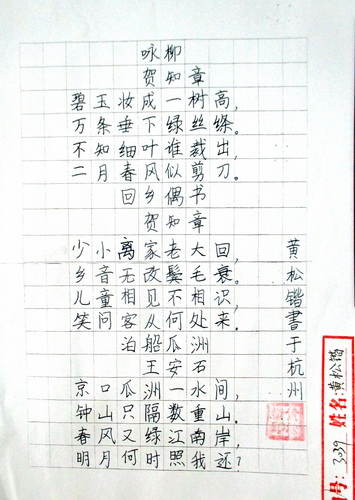 咏柳
贺知章
碧玉妆成一树高，
万条垂下绿丝绦。
不知细叶谁裁出，
二月春风似剪刀。
回乡偶书
贺知章
少小离家老大回，
乡音无改鬓毛衰。
儿童相见不相识，
笑问客从何处来.
泊船瓜洲
王安石
京口瓜洲一水间，
钟山只隔数重山.
春风又绿江南岸，
明月何时照我还？
黄松锴書于杭州
号: 3039 姓名: 黄松锴